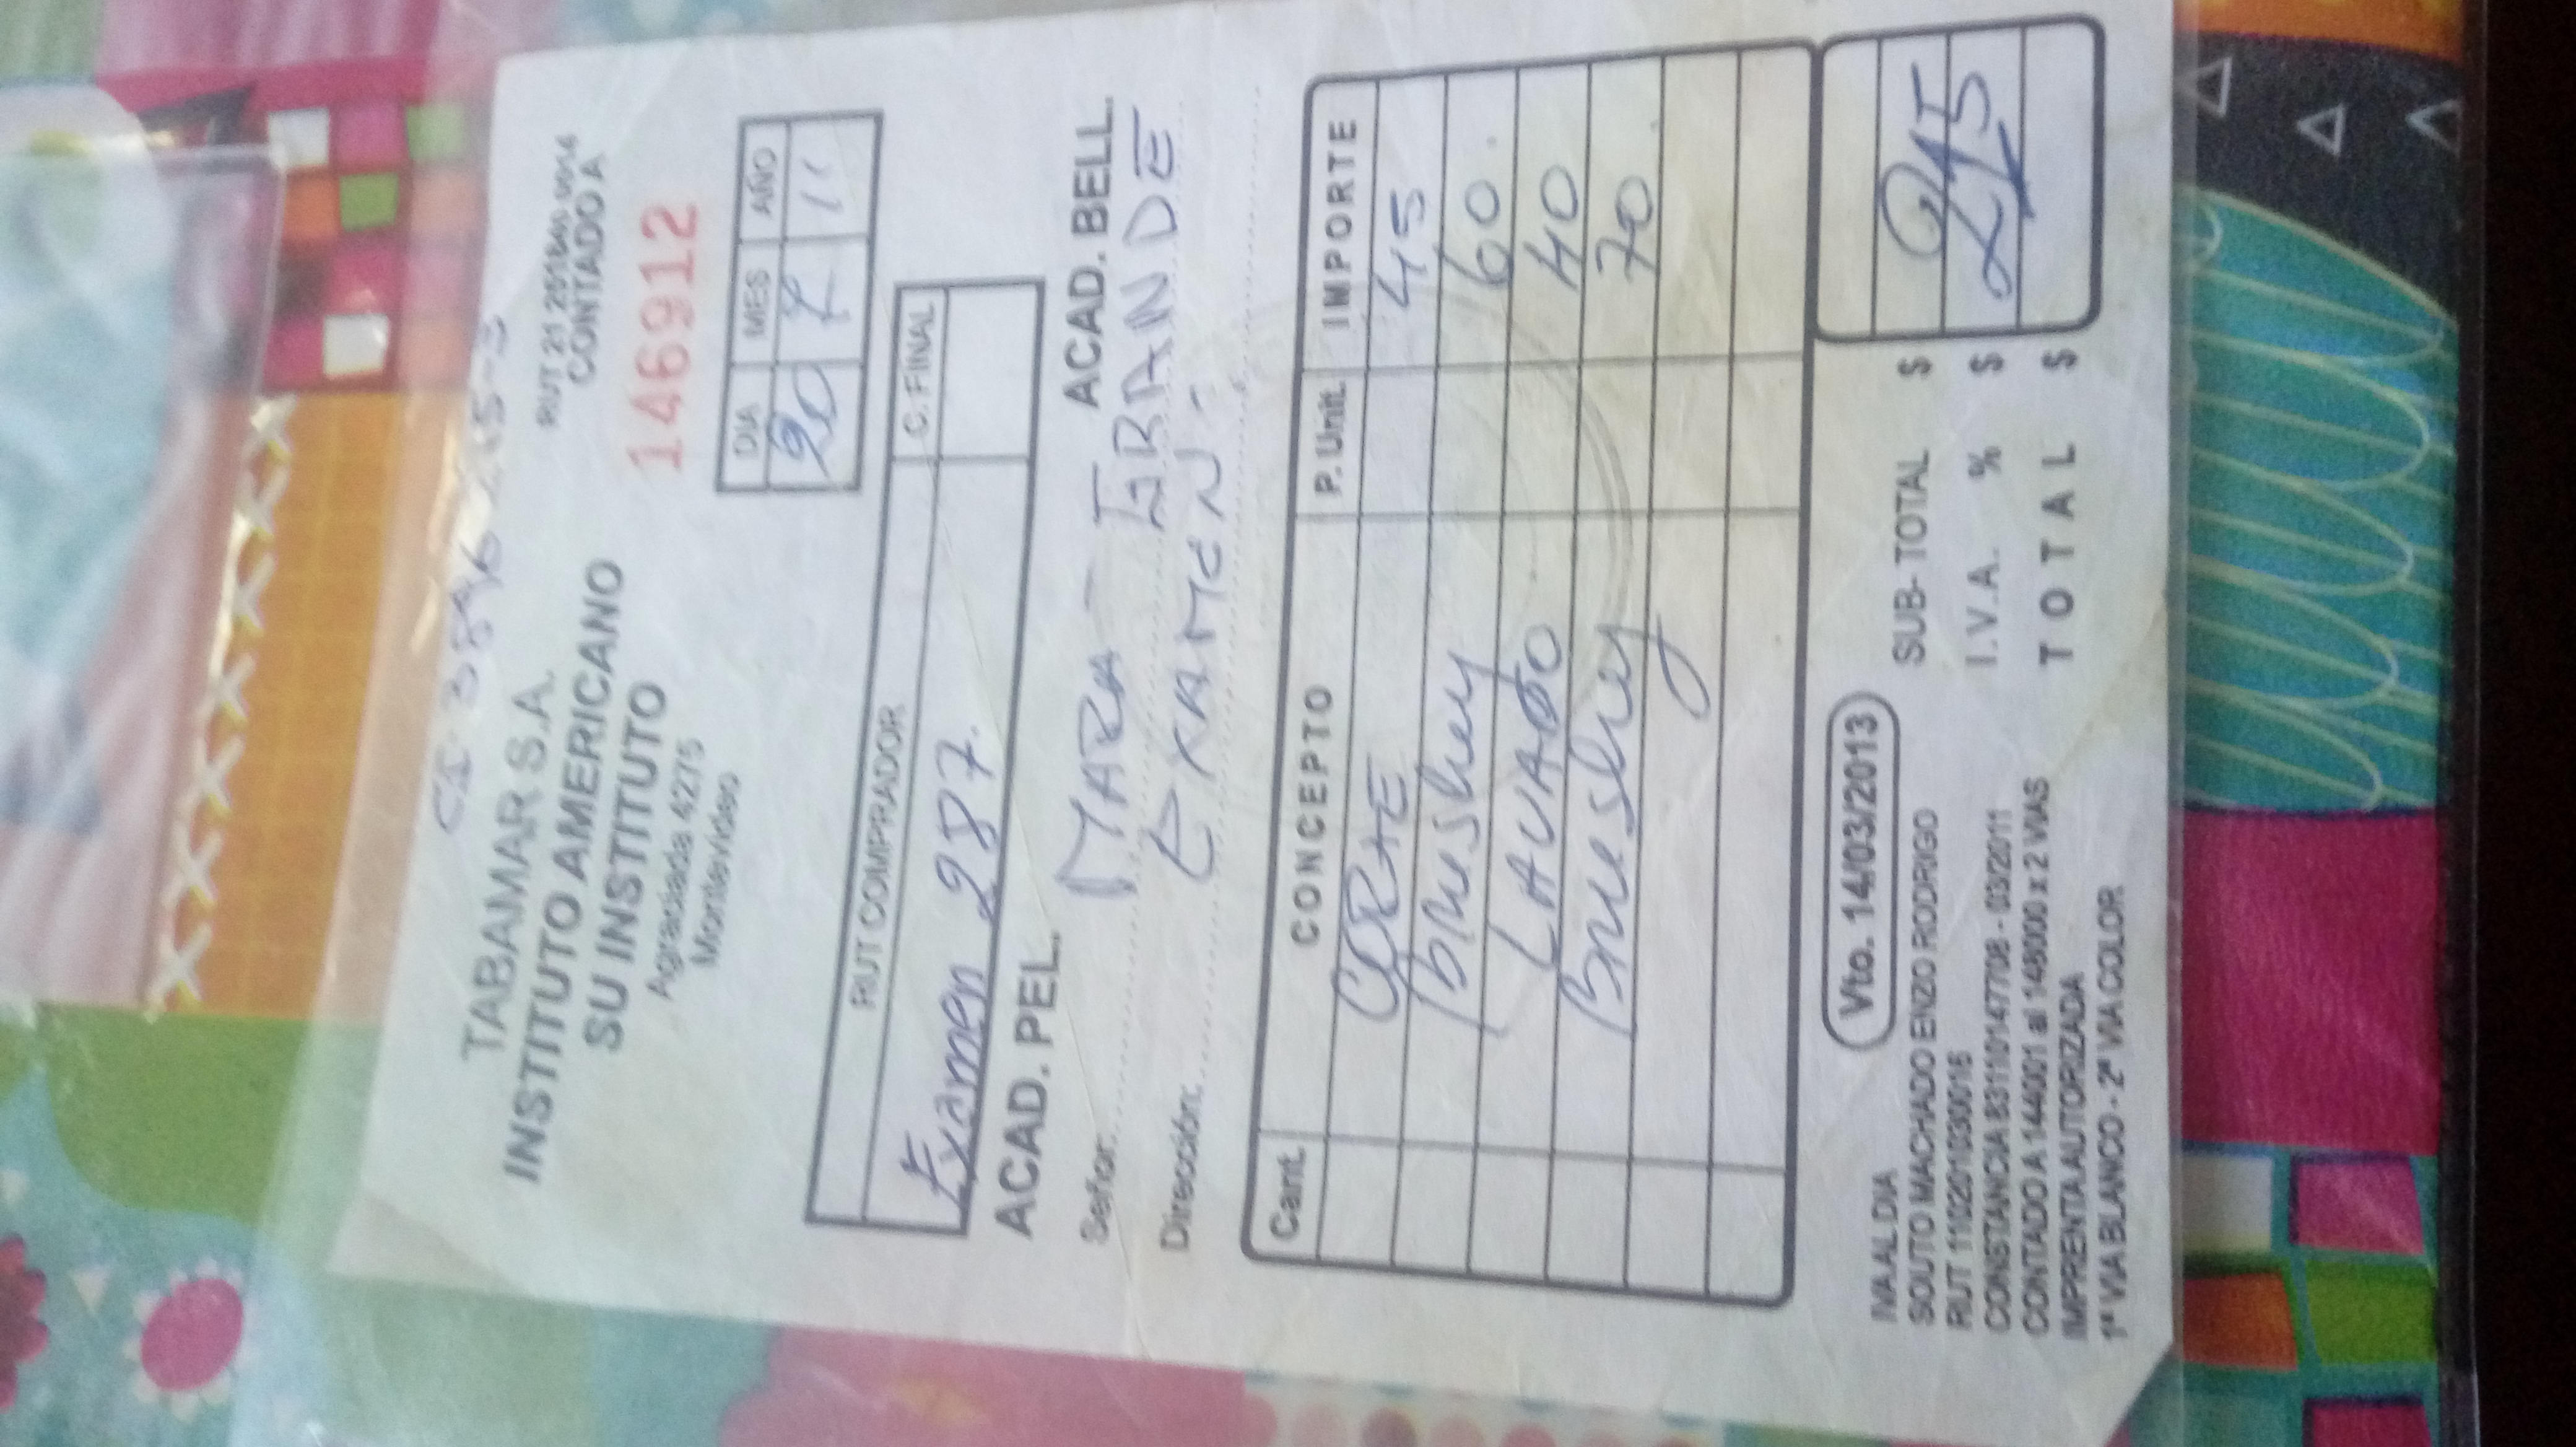 CI 3896
TABAMAR S.A.
INSTITUTO AMERICANO
SU INSTITUTO
Agraciada 4275
Montevideo
RUT 21
CONTADO A
146912
DIA MES AÑO
20 7 11
RUT COMPRADOR C. FINAL
Examen 287.
ACAD. PEL. ACAD. BELL.
Señor: MARA - GRANDE
Dirección: EXAMEN:
Cant. CONCEPTO P. Unit. IMPORTE
CORTE 45
Brushey 60.
LAVADO 40
Brushy 70.
Vto. 14/03/2013
IVA AL DIA
SOUTO MACHADO ENZO RODRIGO
RUT 110201030016
CONSTANCIA 83110147708 - 03/2011
CONTADO A 144001 al 148000 x 2 VIAS
IMPRENTA AUTORIZADA
1ª VIA BLANCO - 2ª VIA COLOR
SUB- TOTAL $
I.V.A. % $
215
TOTAL $